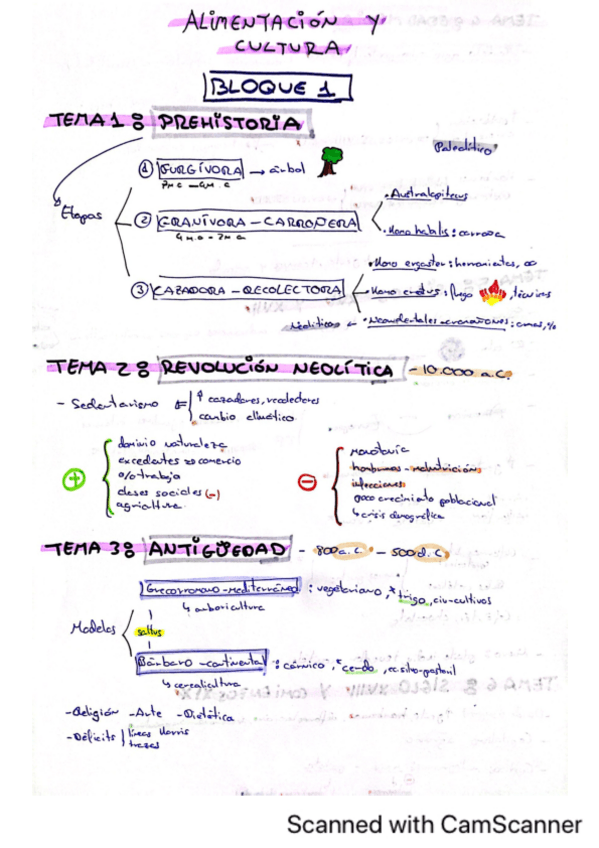 ALIMENTACIÓN Y
CULTURA
BLOQUE 1
TEMA 1: PREHISTORIA
Paleolítico
Etapas
1 FURGÍVORA → árbol
7M.C - 4M.C
2 GRANÍVORA - CARROÑERA
• Australopitecus
• Homo habilis: carroña
3 CAZADORA - RECOLECTORA
• Homo ergaster: herramientas,
• Homo erectus: fuego, técnicas
Neolítico ← • Neandertales - cromañones: armas,
TEMA 2: REVOLUCIÓN NEOLÍTICA - 10.000 a.C.
- Sedentarismo ⇐ ↑ cazadores, recolectores
cambio climático
+
dominio naturaleza
excedentes ⇒ comercio
o/o trabajo
clases sociales (-)
agricultura
-
monotonía
hambrunas - malnutrición
infecciones
poco crecimiento poblacional
↳ crisis demográfica
TEMA 3: ANTIGÜEDAD - 800 a.C. - 500 d.C.
Modelos
Grecorromano - mediterráneo: vegetariano, * trigo, civ-cultivos
↳ arboricultura
saltus
Bárbaro - continental: cárnico, * cerdo, silvo-pastoril
↳ cerealicultura
- Religión - Arte - Dietética
- Déficits líneas Harris
trazas
Scanned with CamScanner